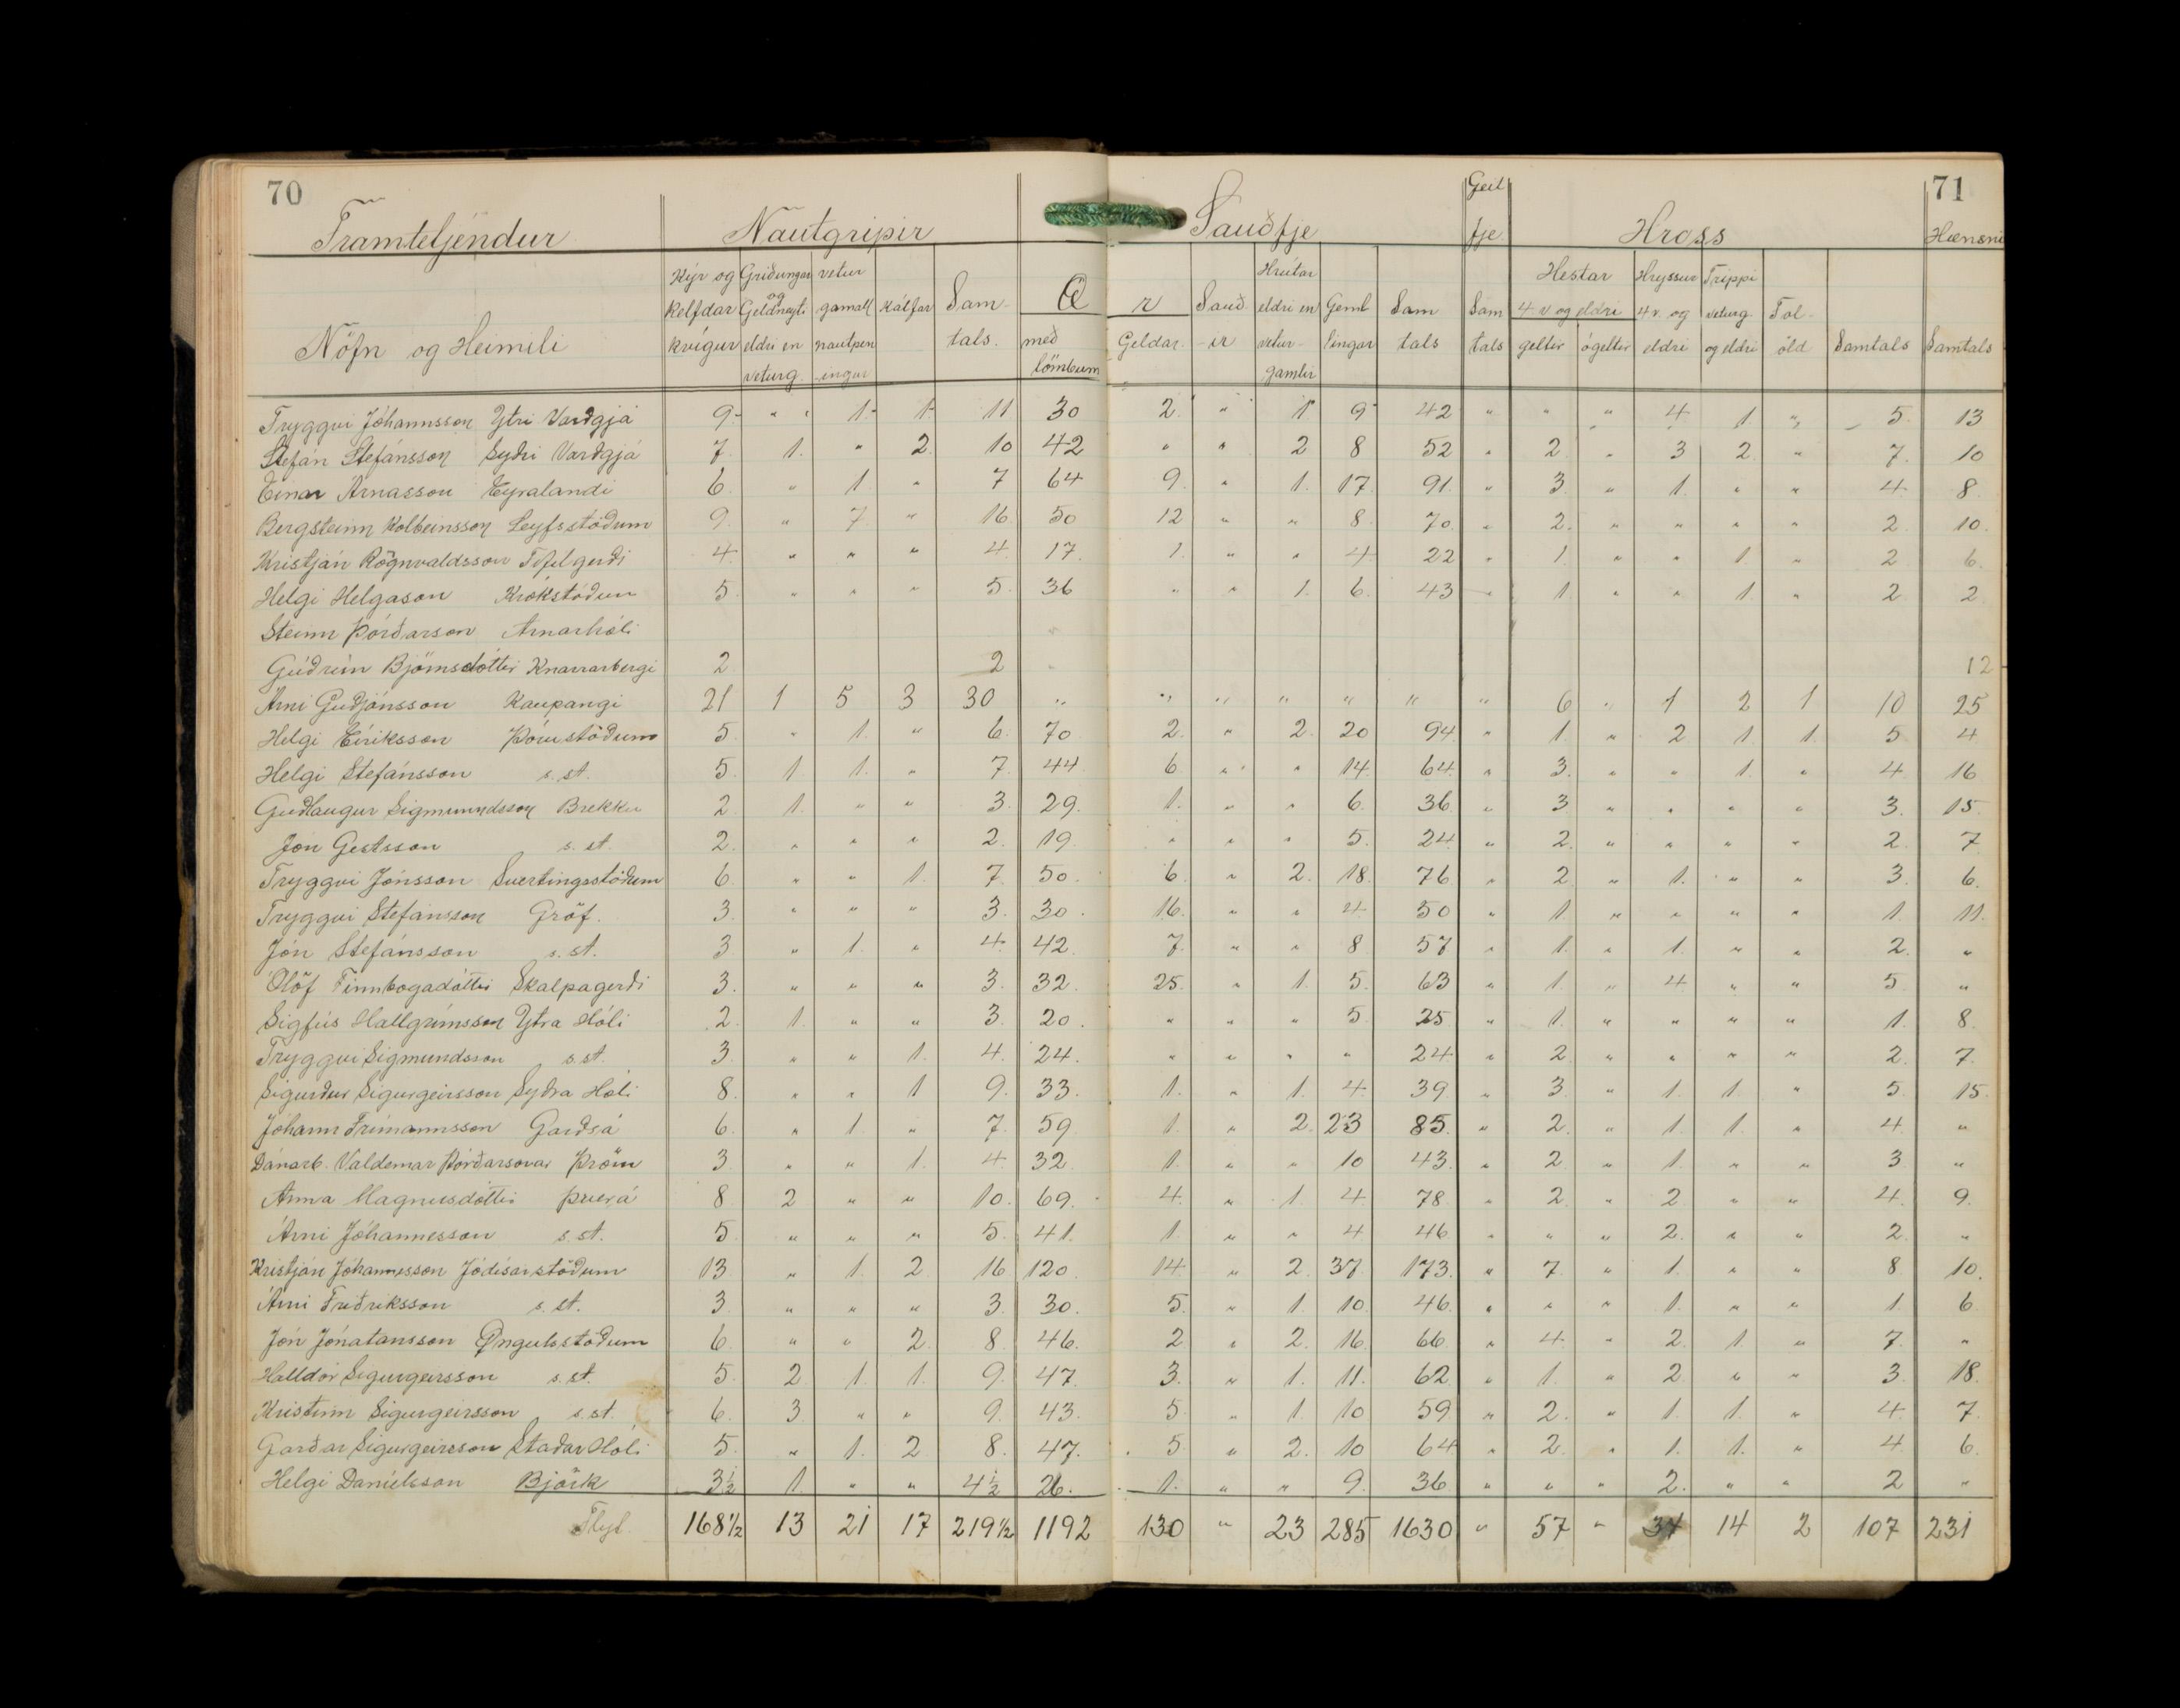 70
71
Framteljendur Nautgripir Sauðfje Geit fje Hross Hænsni
Nöfn og Heimili Kýr og kelfdar kvígur Griðungar og Geldneyti eldri en veturg. vetur gamall nautpeningur kálfar Samtals. Ær með lömbum Geldar Sauðir Hrútar eldri en veturgamlir Gemlingar Samtals Samtals Hestar 4 v og eldri geltir ógeltir Hryssur 4 v. og eldri Trippi veturg og eldri Folöld Samtals Samtals
Tryggvi Jóhannsson Ytri Varðgjá 9 " 1 1 11 30 2 " 1 9 42 " " " 4 1 " 5 13
Stefán Stefánsson Syðri Varðgjá 7 1 " 2 10 42 " " 2 8 52 " 2 " 3 2 " 7 10
Einar Árnasson Eyralandi 6 " 1 " 7 64 9 " 1 17 91 " 3 " 1 " " 4 8
Bergsteinn Kolbeinsson Leyfsstöðum 9 " 7 " 16 50 12 " " 8 70 " 2 " " " " 2 10
Kristján Rögnvaldsson Fífilgerði 4 " " " 4 17 1 " " 4 22 " 1 " " 1 " 2 6
Helgi Helgason Krókstöðum 5 " " " 5 36 " " 1 6 43 " 1 " " 1 " 2 2
Steinn Þórðarson Arnarhóli
Guðrún Björnsdóttir Knarrarbergi 2 2 12
Árni Guðjónsson Kaupangi 21 1 5 3 30 " " " " " " " 6 " 1 2 1 10 25
Helgi Eiríksson Þórustöðum 5 " 1 " 6 70 2 " 2 20 94 " 1 " 2 1 1 5 4
Helgi Stefánsson s. st. 5 1 1 " 7 44 6 " " 14 64 " 3 " " 1 " 4 16
Guðlaugur Sigmundsson Brekku 2 1 " " 3 29 1 " " 6 36 " 3 " " " " 3 15
Jón Gestsson s. st. 2 " " " 2 19 " " " 5 24 " 2 " " " " 2 7
Tryggvi Jónsson Svertingsstöðum 6 " " 1 7 50 6 " 2 18 76 " 2 " 1 " " 3 6
Tryggvi Stefánsson Gröf. 3 " " " 3 30 16 " " 4 50 " 1 " " " " 1 11
Jón Stefánsson s. st. 3 " 1 " 4 42 7 " " 8 57 " 1 " 1 " " 2 "
Ólöf Finnbogadóttir Skálpagerði 3 " " " 3 32 25 " 1 5 63 " 1 " 4 " " 5 "
Sigfús Hallgrímsson Ytra Hóli 2 1 " " 3 20 " " " 5 25 " 1 " " " " 1 8
Tryggvi Sigmundsson s. st. 3 " " 1 4 24 " " " " 24 " 2 " " " " 2 7
Sigurður Sigurgeirsson Syðra Hóli 8 " " 1 9 33 1 " 1 4 39 " 3 " 1 1 " 5 15
Jóhann Frímannsson Garðsá 6 " 1 " 7 59 1 " 2 23 85 " 2 " 1 1 " 4 "
Dánarb. Valdemar Þórðarsonar Þröm 3 " " 1 4 32 1 " " 10 43 " 2 " 1 " " 3 "
Anna Magnúsdóttir Þverá 8 2 " " 10 69 4 " 1 4 78 " 2 " 2 " " 4 9
Árni Jóhannesson s. st. 5 " " " 5 41 1 " " 4 46 " " " 2 " " 2 "
Kristján Jóhannesson Jódísarstöðum 13 " 1 2 16 120 14 " 2 37 173 " 7 " 1 " " 8 10
Árni Friðriksson s. st. 3 " " " 3 30 5 " 1 10 46 " " " 1 " " 1 6
Jón Jónatansson Öngulsstöðum 6 " " 2 8 46 2 " 2 16 66 " 4 " 2 1 " 7 "
Halldór Sigurgeirsson s. st. 5 2 1 1 9 47 3 " 1 11 62 " 1 " 2 " " 3 18
Kristinn Sigurgeirsson s. st. 6 3 " " 9 43 5 " 1 10 59 " 2 " 1 1 " 4 7
Garðar Sigurgeirsson Staðarhóli 5 " 1 2 8 47 5 " 2 10 64 " 2 " 1 1 " 4 6
Helgi Daníelsson Björk 3½ 1 " " 4½ 26 1 " " 9 36 " " " 2 " " 2 "
Flyt. 168½ 13 21 17 219½ 1192 130 " 23 285 1630 " 57 " 34 14 2 107 231